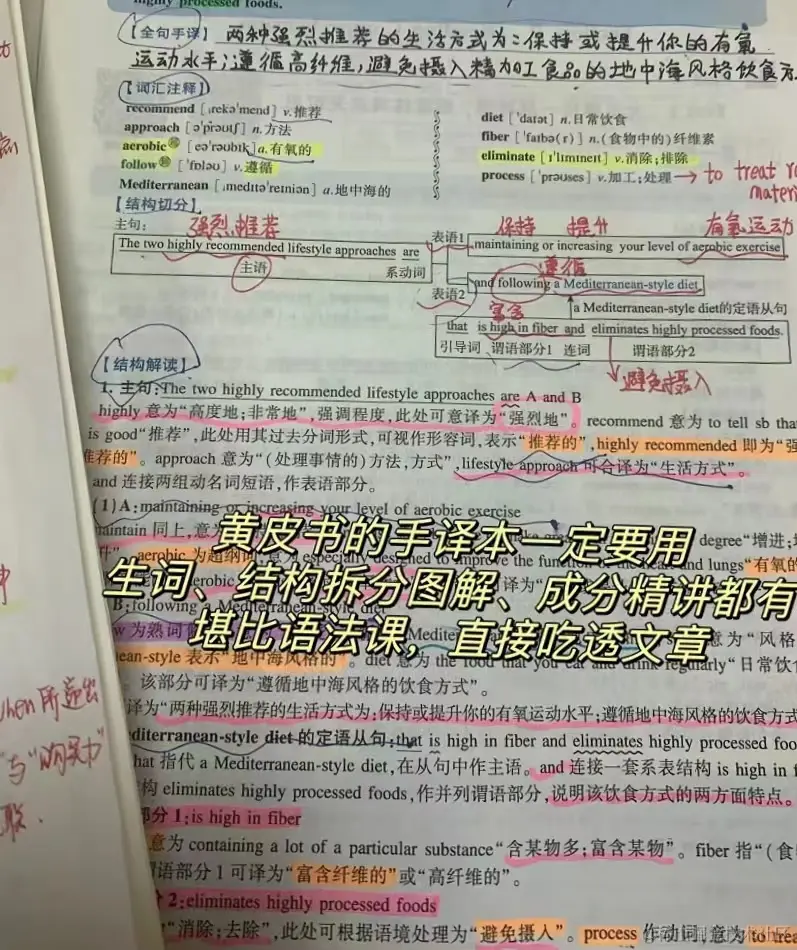 highly processed foods.
【全句手译】 两种强烈推荐的生活方式为:保持或提升你的有氧
运动水平;遵循高纤维,避免摄入精加工食品的地中海风格饮食方
【词汇注释】
recommend [ˌrekəˈmend] v.推荐
approach [əˈprəʊtʃ] n.方法
aerobic [eəˈrəʊbɪk] a.有氧的
follow [ˈfɒləʊ] v.遵循
Mediterranean [ˌmedɪtəˈreɪniən] a.地中海的
diet [ˈdaɪət] n.日常饮食
fiber [ˈfaɪbə(r)] n.(食物中的)纤维素
eliminate [ɪˈlɪmɪneɪt] v.消除;排除
process [ˈprəʊses] v.加工;处理 → to treat
【结构切分】
主句: 强烈推荐
The two highly recommended lifestyle approaches are
主语 系动词
保持 提升 有氧运动
表语1 maintaining or increasing your level of aerobic exercise
遵循
and following a Mediterranean-style diet
表语2
a Mediterranean-style diet的定语从句
富含
that is high in fiber and eliminates highly processed foods.
引导词 谓语部分1 连词 谓语部分2
避免摄入
【结构解读】
1. 主句:The two highly recommended lifestyle approaches are A and B
highly 意为“高度地;非常地”,强调程度,此处可意译为“强烈地”。recommend 意为 to tell sb tha
is good“推荐”,此处用其过去分词形式,可视作形容词,表示“推荐的”,highly recommended 即为“强
推荐的”。approach 意为“(处理事情的)方法,方式”,lifestyle approach 可合译为“生活方式”。
and 连接两组动名词短语,作表语部分。
(1)A:maintaining or increasing your level of aerobic exercise
maintain 同上,意为 degree“增进;
aerobic 为超纲词 意为 especially designed to improve the function and lungs“有氧的
黄皮书的手译本一定要用
生词、结构拆分图解、成分精讲都有
堪比语法课,直接吃透文章
B:following a Mediterranean-style diet
为熟词 意为“风格
ean-style 表示“地中海风格的”。diet 意为 the food that you eat and drink regularly“日常饮食
该部分可译为“遵循地中海风格的饮食方式”。
译为“两种强烈推荐的生活方式为:保持或提升你的有氧运动水平;遵循地中海风格的饮食方式
diterranean-style diet 的定语从句:that is high in fiber and eliminates highly processed foo
hat 指代 a Mediterranean-style diet,在从句中作主语。and 连接一套系表结构 is high in f
构 eliminates highly processed foods,作并列谓语部分,说明该饮食方式的两方面特点。
部分 1:is high in fiber
意为 containing a lot of a particular substance“含某物多;富含某物”。fiber 指“(食
谓语部分 1 可译为“富含纤维的”或“高纤维的”。
2:eliminates highly processed foods
“消除;去除”,此处可根据语境处理为“避免摄入”。process 作动词,意为 to trea